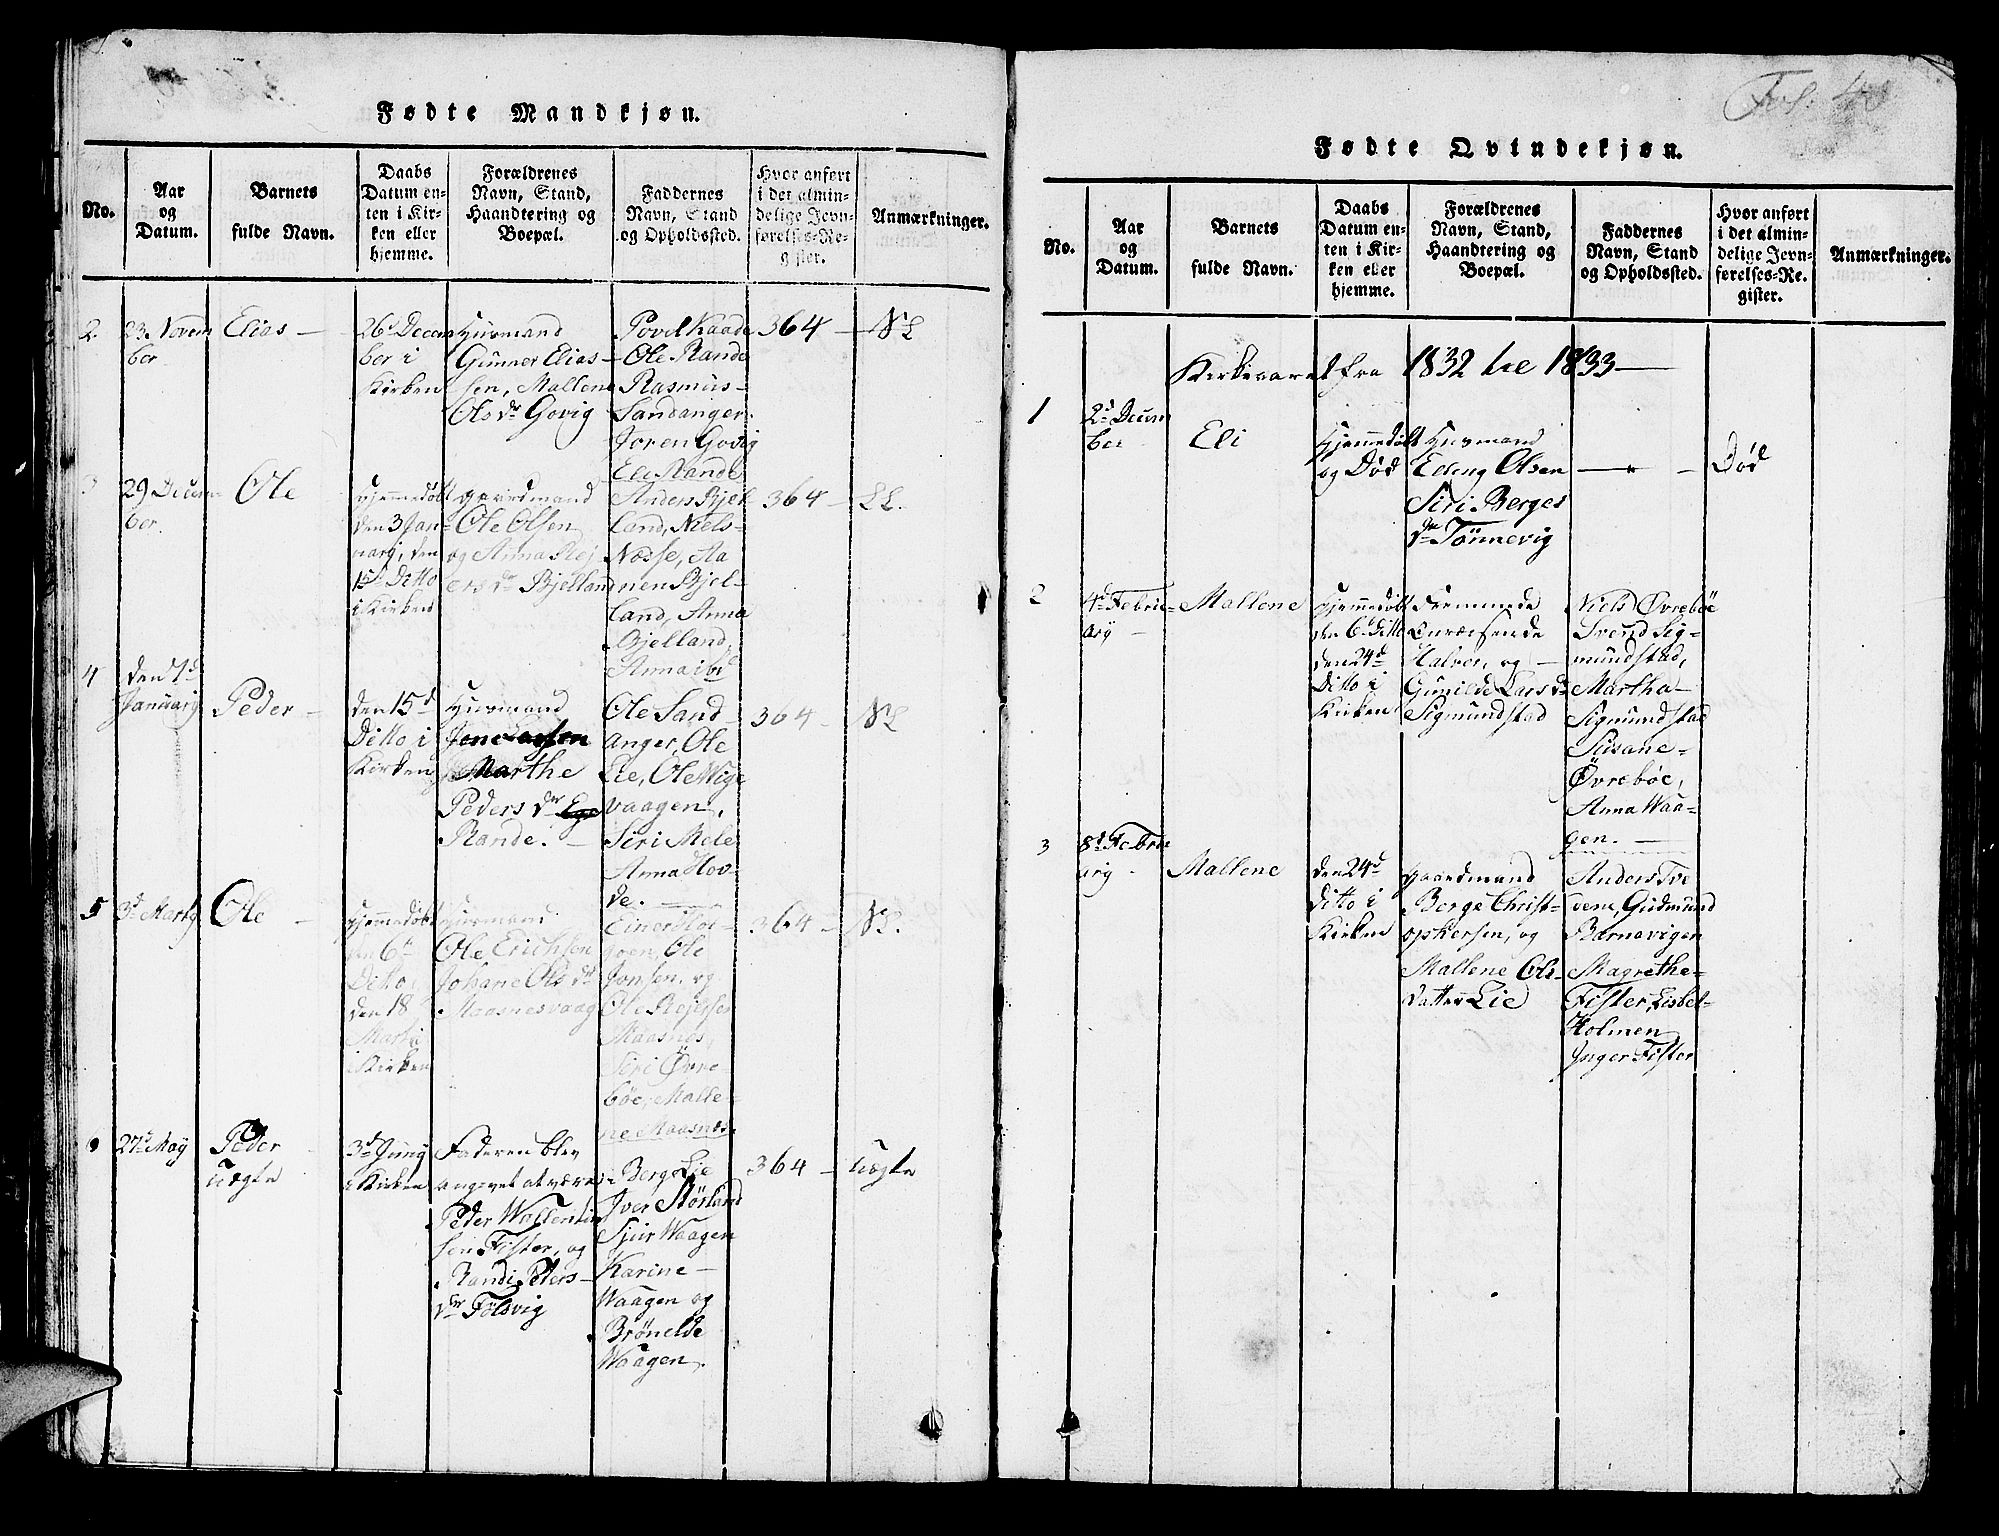 Fødte Mandkjøn.
No.
Aar
og
Datum.
Barnets
fulde Navn.
Daabs
Datum en-
ten i Kir-
ken eller
hjemme.
Forældrenes
Navn, Stand,
Haandtering og
Boepæl.
Faddernes
Navn, Stand
og Opholdssted.
Hvor anført
i det almin-
delige Jevn-
førelses-Re-
gister.
Anmærkninger.
2
23. Novem
ber
Elias —
26d Decem
ber i
Kirken
Huusmand
Gunner Elias-
sen, Mallene
Olsdr Govig
Povel Kaade
Ole Rande
Rasmus
Sandanger
Joren Govig
Eli Rande
364 —
NL
3
29 Decem
ber.
Ole
Hjemmedøbt
den 3 Jan-
uarj, den
15d Ditto
i Kirken
Gaardmand
Ole Olsen
og Anna Rej
ersdr Bjelland
Anders Bjel
land, Niels
Nosse, Aa
nen Bjel-
land, Anna
Bjelland,
Anna ibd
364 —
LL.
4
den 7d
Januarij
Peder —
den 15d
Ditto i
Kirken
Huusmand
Marthe
Pedersdr
Rande. —
Ole Sand-
anger, Ole
Lie, Ole Wige
vaagen,
Siri Mele
Anna Hov-
de. —
364 —
NL
5
3d Martij
Ole —
Hjemmedøbt
den 6d
Ditto,
den 18
Marti
i Kirken
Huusmand
Ole Erichsen
Johane Olsdr
Maasnesvaag
Einer Hoi-
goen, Ole
Jonsen, og
Ole Rejersen
Maasnes,
Siri Øvre
bøe, Malle-
ne Maasnes.
364 —
NL.
27d May
Peder
Uægte
3d Junij
i Kirken
Faderen blev
angivet at være
Peder Wallentin
sen Fister, og
Randi Peders-
dr Følsvig
Berge Lie
Iver Størland
Sjur Waagen
Karine
Waagen og
Brønelde
Waagen.
364 —
Uægte
Fol: 40
Fødte Qvindekjøn.
No.
Aar
og
Datum.
Barnets
fulde Navn.
Daabs
Datum en-
ten i Kir-
ken eller
hjemme.
Forældrenes
Navn, Stand,
Haandtering og
Boepæl.
Faddernes
Navn, Stand
og Opholdssted.
Hvor anført
i det almin-
delige Jevn-
førelses-Re-
gister.
Anmærkninger.
Kirkeaaret fra 1832 til 1833 —
1
2d Decem
ber
Eli
Hjemmedøbt
og Død
Huusmand
Elling Olsen
Siri Berges
dr Tönnevig
— " —
Død
2
4d Febru-
ary —
Mallene
Hjemmedøbt
den 6d Ditto
den 24d
Ditto i
Kirken
Fremmede
Omreisende
Halvor, og —
Gunilde Larsdr
Sigmundstad
Niels Øvrebøe
Svend Sig-
mundstad,
Martha
Sigmundstad
Susane
Øvrebøe,
Anna Waa-
gen. —
3
8d Febru
ary —
Mallene
den 24d
Ditto i
Kirken
Gaardmand
Berge Christ-
ophersen, og
Mallene Ols-
datter Lie
Anders Tve
dene, Gudmund
Barnavigen
Magrethe
Fister, Lisbet
Holmen
Inger Fister